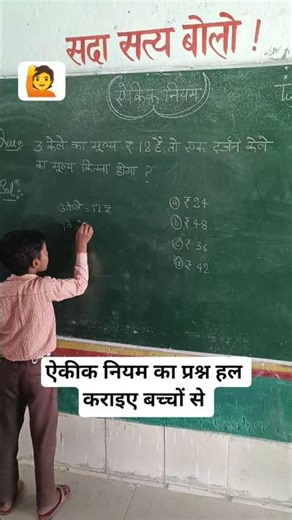 सदा सत्य बोलो !
ऐकिक नियम
Ques:- 3 केले का मूल्य ₹ 12 है, तो एक दर्जन केले
का मूल्य कितना होगा ?
Sol:-
3 केले = 12 ₹
(a) ₹ 24
(b) ₹ 48
(c) ₹ 36
(d) ₹ 42
ऐकीक नियम का प्रश्न हल
कराइए बच्चों से